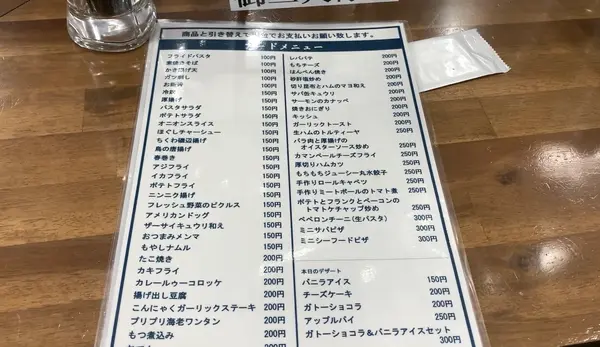 商品と引き替えで現金でお支払いお願い致します。
フードメニュー
フライドパスタ 100円
素焼きそば 100円
かき揚げ天 100円
ガツ刺し 100円
お新香 100円
冷奴 150円
厚揚げ 150円
パスタサラダ 150円
ポテトサラダ 150円
オニオンスライス 150円
ほぐしチャーシュー 150円
ちくわ磯辺揚げ 150円
鳥の唐揚げ 150円
春巻き 150円
アジフライ 150円
イカフライ 150円
ポテトフライ 150円
ニンニク揚げ 150円
フレッシュ野菜のピクルス 150円
アメリカンドッグ 150円
ザーサイキュウリ和え 150円
おつまみメンマ 150円
もやしナムル 150円
たこ焼き 200円
カキフライ 200円
カレールゥーコロッケ 200円
揚げ出し豆腐 200円
こんにゃくガーリックステーキ 200円
プリプリ海老ワンタン 200円
もつ煮込み 200円
レバパテ 200円
もちチーズ 200円
はんぺん焼き 200円
砂肝塩炒め 200円
切り昆布とハムのマヨ和え 200円
サバ缶キュウリ 200円
サーモンのカナッペ 200円
焼きおにぎり 200円
キッシュ 200円
ガーリックトースト 200円
生ハムのトルティーヤ 250円
バラ肉と厚揚げの
オイスターソース炒め 250円
カマンベールチーズフライ 250円
厚切りハムカツ 250円
もちもちジューシー丸水餃子 250円
手作りロールキャベツ 250円
手作りミートボールのトマト煮 250円
ポテトとフランクとベーコンの
トマトケチャップ炒め 250円
ペペロンチーニ(生パスタ) 300円
ミニサバピザ 300円
ミニシーフードピザ 300円
本日のデザート
バニラアイス 150円
チーズケーキ 200円
ガトーショコラ 200円
アップルパイ 250円
ガトーショコラ&バニラアイスセット
300円